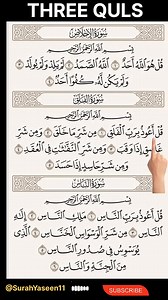 THREE QULS
سُورَةُ الإِخْلَاصِ
بِسْمِ اللَّهِ الرَّحْمَٰنِ الرَّحِيمِ
قُلْ هُوَ اللَّهُ أَحَدٌ ۝ اللَّهُ الصَّمَدُ ۝ لَمْ يَلِدْ وَلَمْ يُولَدْ ۝
وَلَمْ يَكُن لَّهُ كُفُوًا أَحَدٌ ۝
سُورَةُ الفَلَقِ
بِسْمِ اللَّهِ الرَّحْمَٰنِ الرَّحِيمِ
قُلْ أَعُوذُ بِرَبِّ الْفَلَقِ ۝ مِن شَرِّ مَا خَلَقَ ۝ وَمِن شَرِّ
غَاسِقٍ إِذَا وَقَبَ ۝ وَمِن شَرِّ النَّفَّاثَاتِ فِي الْعُقَدِ ۝
وَمِن شَرِّ حَاسِدٍ إِذَا حَسَدَ ۝
سُورَةُ النَّاسِ
بِسْمِ اللَّهِ الرَّحْمَٰنِ الرَّحِيمِ
قُلْ أَعُوذُ بِرَبِّ النَّاسِ ۝ مَلِكِ النَّاسِ ۝ إِلَٰهِ
النَّاسِ ۝ مِن شَرِّ الْوَسْوَاسِ الْخَنَّاسِ ۝ الَّذِي
يُوَسْوِسُ فِي صُدُورِ النَّاسِ ۝
مِنَ الْجِنَّةِ وَالنَّاسِ ۝
@SurahYaseen11
SUBSCRIBE